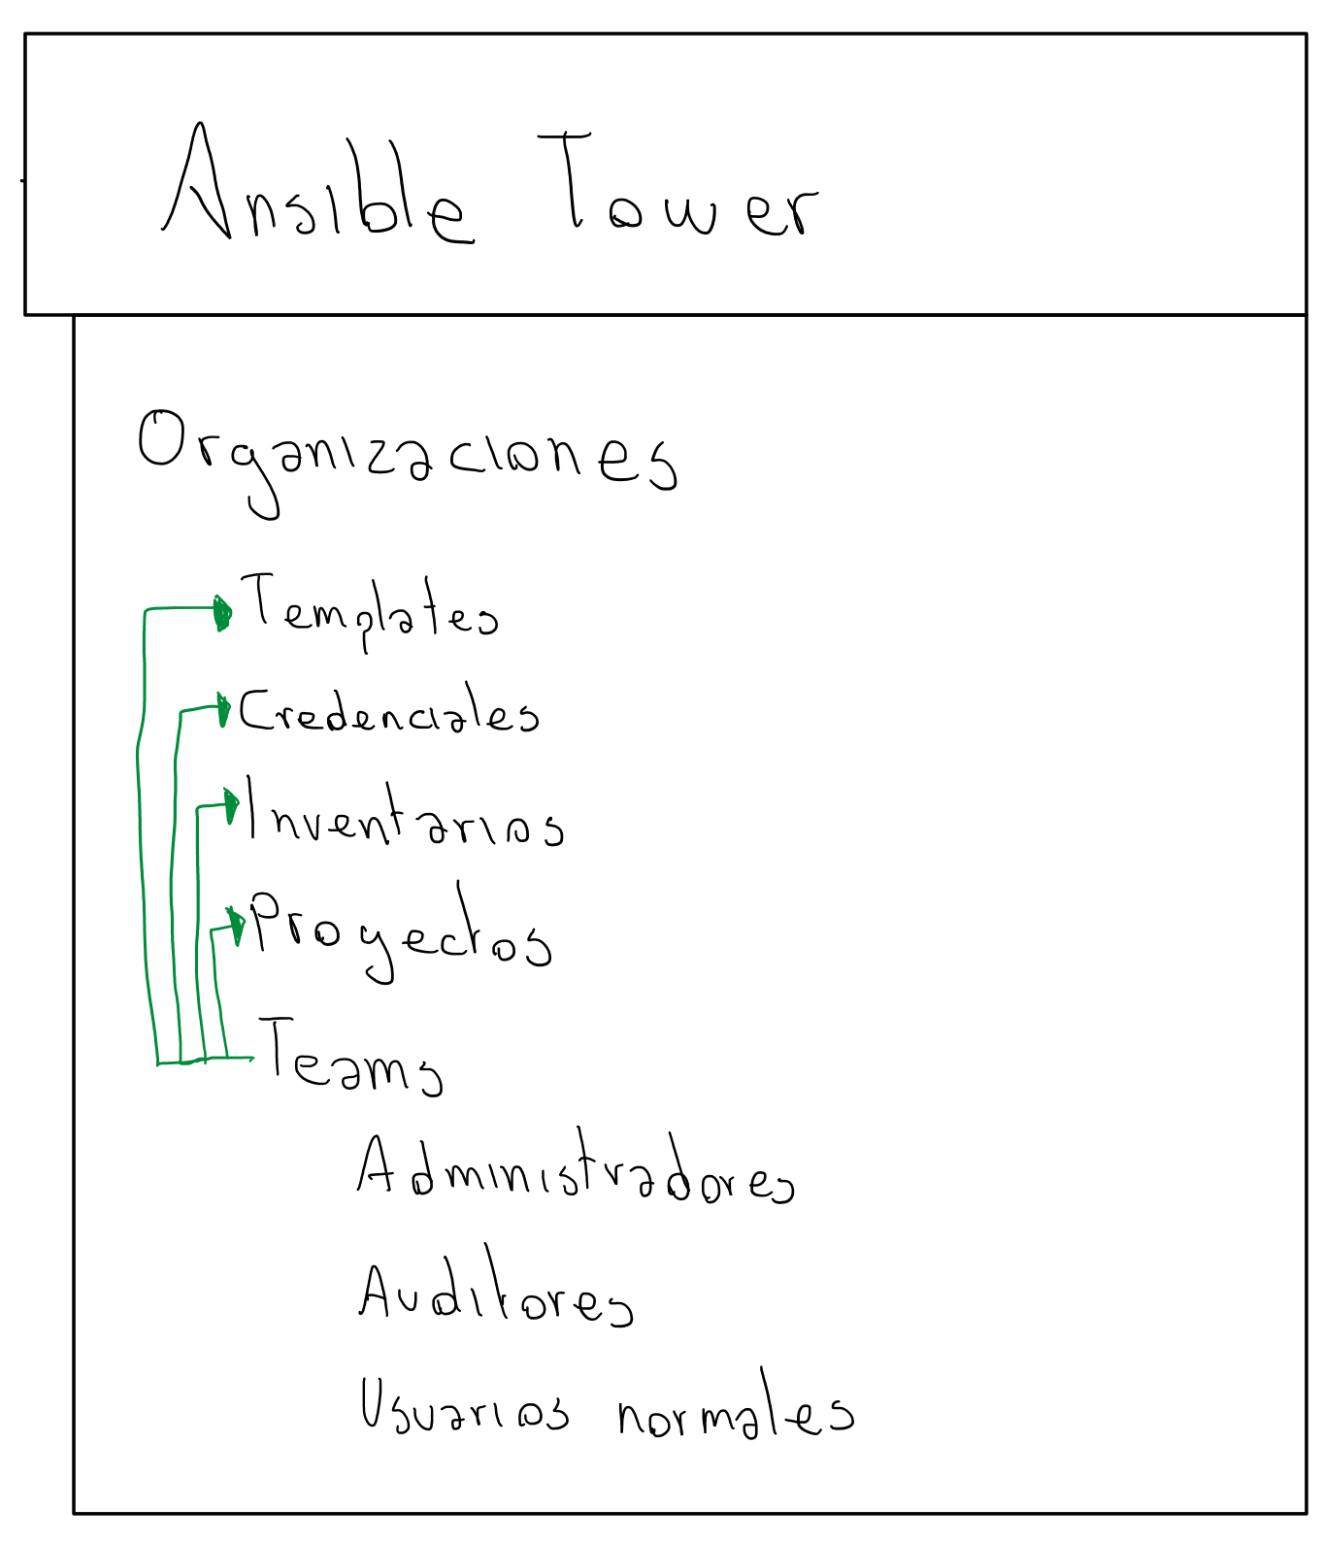 Ansible Tower
Organizaciones
Templates
Credenciales
Inventarios
Proyectos
Teams
Administradores
Auditores
Usuarios normales